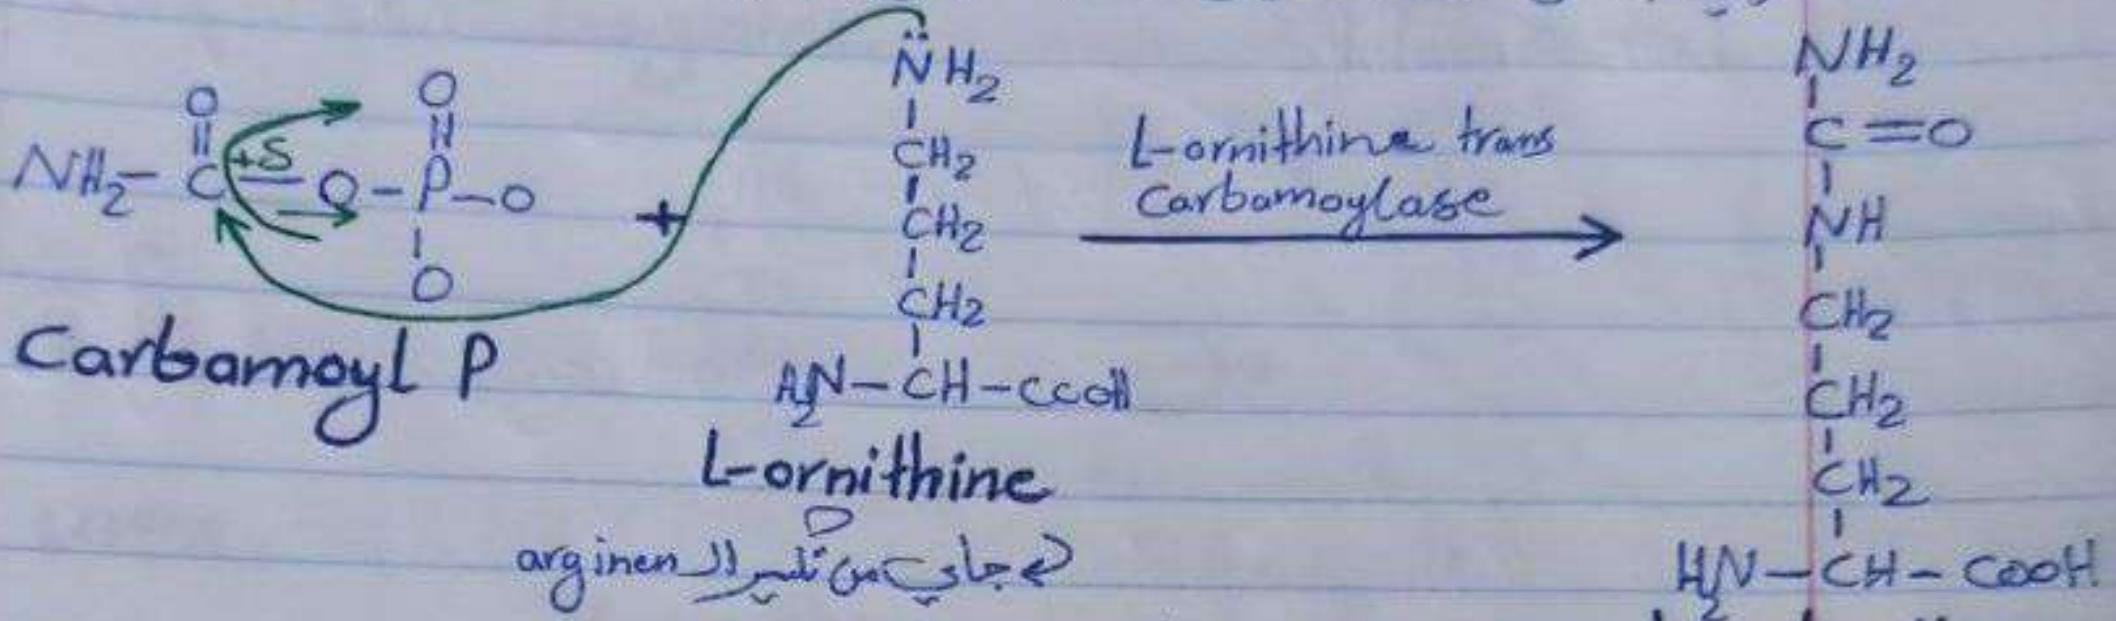 NH2-C=O-P-O
O
O
+S
O
Carbamoyl P
+
N̈H2
CH2
CH2
CH2
H2N-CH-CCOH
L-ornithine
جاي من تكسير الـ arginen
L-ornithine trans
carbamoylase
NH2
C=O
NH
CH2
CH2
CH2
H2N-CH-COOH